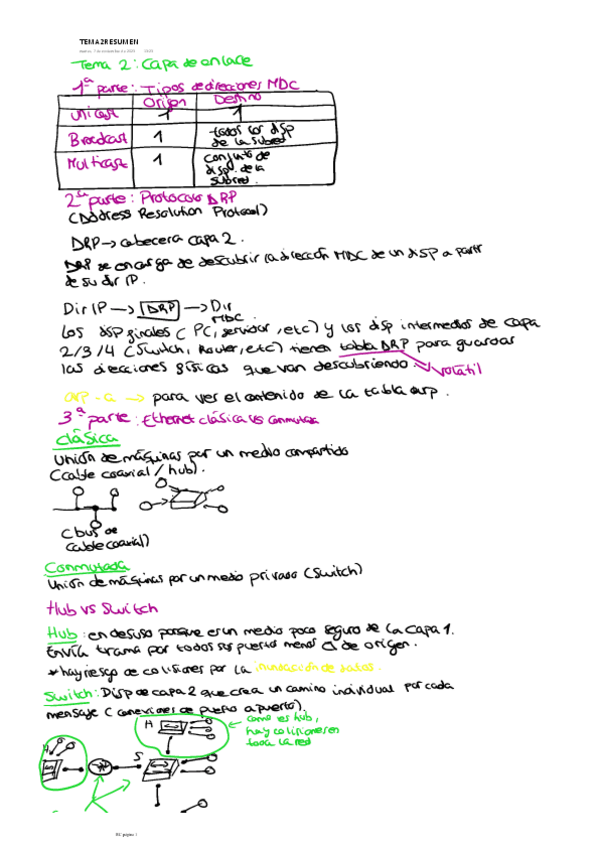 TEMA2RESUMEN
Tema 2: Capa de enlace
1ª parte: Tipos de direcciones MAC
Origen Destino
Unicast 1 1
Broadcast 1 todos los disp de la subred
Multicast 1 conjunto de disp. de la subred.
2ª parte: Protocolo ARP
(Address Resolution Protocol)
ARP → cabecera capa 2.
ARP se encarga de descubrir la dirección MAC de un disp a partir
de su dir IP.
Dir IP → ARP → Dir MAC.
Los disp finales (PC, servidor, etc) y los disp intermedios de capa
2/3/4 (Switch, Router, etc) tienen tabla ARP para guardar
las direcciones físicas que van descubriendo → volátil
arp -a → para ver el contenido de la tabla arp.
3ª parte: Ethernet clásica vs conmutada
Clásica
Unión de máquinas por un medio compartido
(cable coaxial / hub).
(bus de
cable coaxial)
Conmutada
Unión de máquinas por un medio privado (Switch)
Hub vs Switch
Hub: en desuso porque es un medio poco seguro de la capa 1.
Envía trama por todos sus puertos menos el de origen.
* hay riesgo de colisiones por la inundación de datos.
Switch: Disp de capa 2 que crea un camino individual por cada
mensaje (conexiones de puerto a puerto).
H
← como es hub,
hay colisiones en
toda la red
H
S